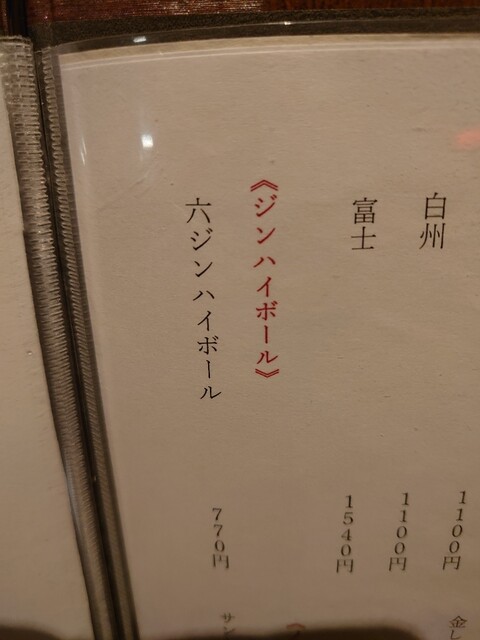 1100円
白州 1100円
富士 1540円
《ジンハイボール》
六ジンハイボール 770円
サン